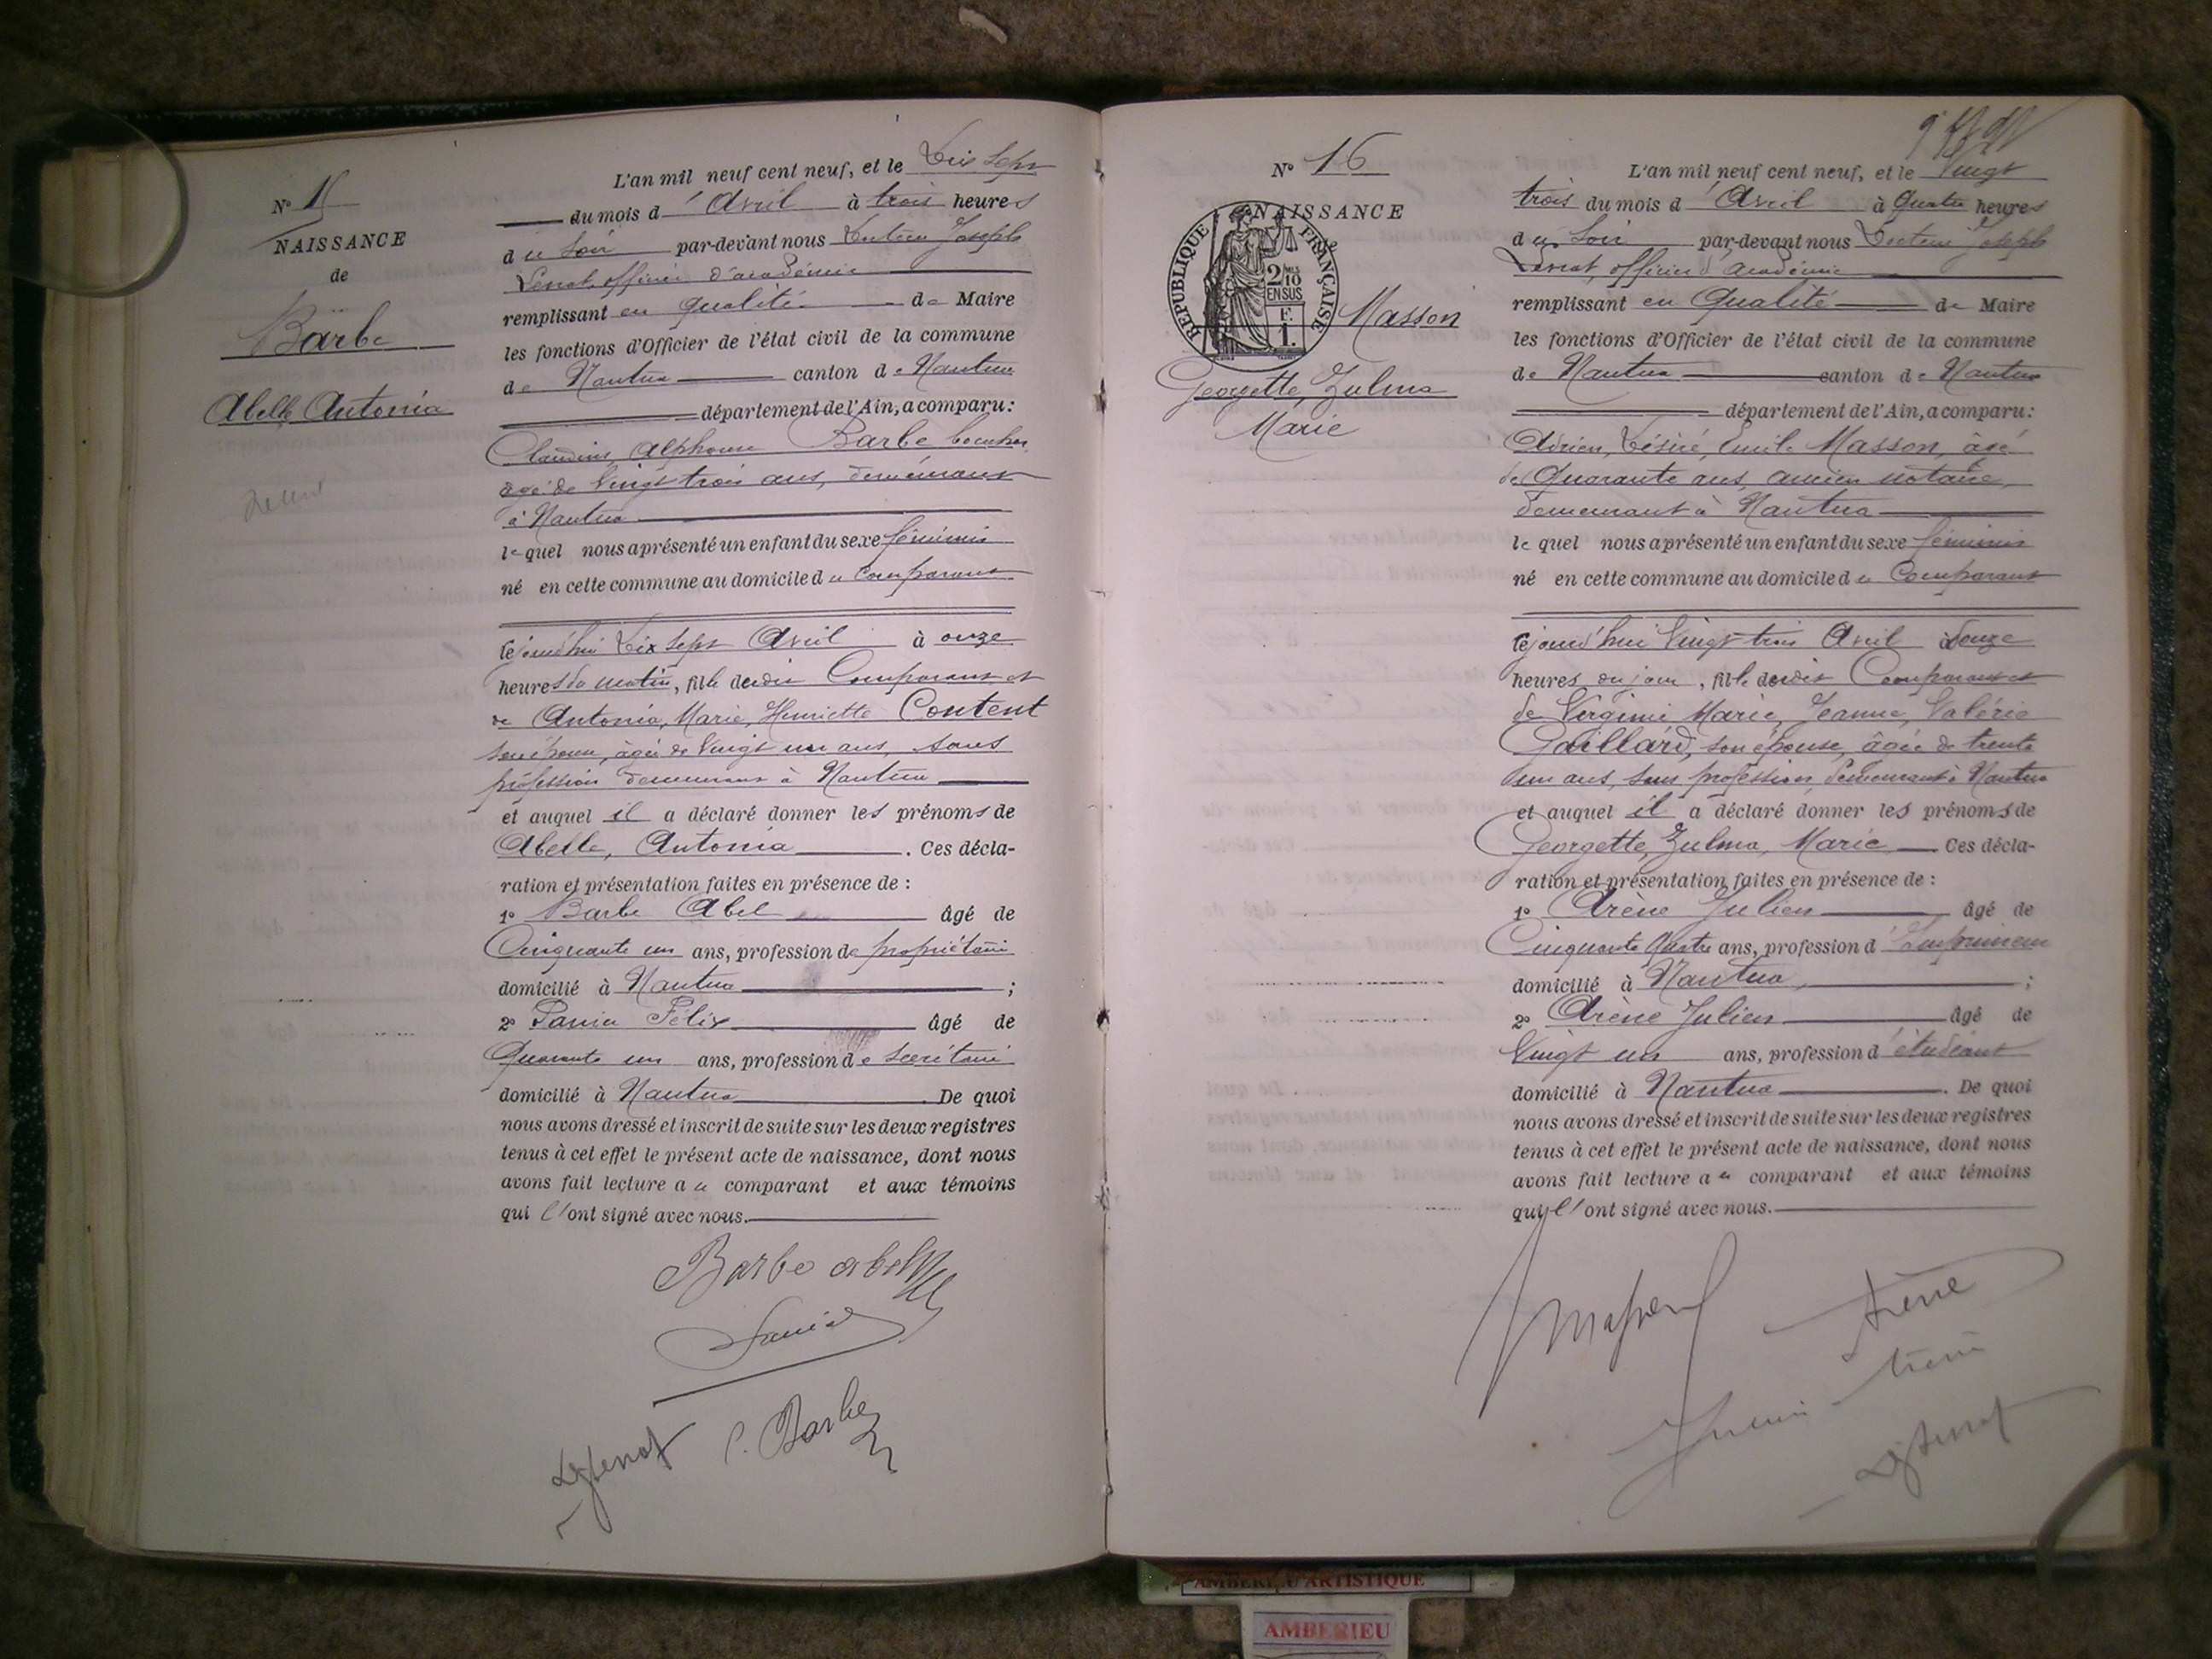 N° 15
NAISSANCE
de
Barbe
Abelle Antonia
L'an mil neuf cent neuf, et le Dix Sept
du mois d'Avril à trois heures
du Soir par-devant nous Docteur Joseph
officier d'académie
remplissant en qualité de Maire
les fonctions d'Officier de l'état civil de la commune
de Nantua canton de Nantua
département de l'Ain, a comparu:
Claudius, Alphonse Barbe boucher,
âgé de Vingt trois ans, demeurant
à Nantua
lequel nous a présenté un enfant du sexe féminin
né en cette commune au domicile du Comparant
cejourd'hui Dix sept Avril à onze
heures du matin, fille dudit Comparant et
de Antonia, Marie, Henriette Content
son épouse, âgée de Vingt un ans, sans
profession demeurant à Nantua
et auquel il a déclaré donner les prénoms de
Abelle, Antonia. Ces décla-
ration et présentation faites en présence de :
1° Barbe Abel âgé de
Cinquante un ans, profession de propriétaire
domicilié à Nantua ;
2° Félix âgé de
Quarante un ans, profession de secrétaire
domicilié à Nantua. De quoi
nous avons dressé et inscrit de suite sur les deux registres
tenus à cet effet le présent acte de naissance, dont nous
avons fait lecture au comparant et aux témoins
qui l'ont signé avec nous.
Barbe abel
C. Barbe
N° 16
NAISSANCE
RÉPUBLIQUE FRANÇAISE
2/10
EN SUS
F.
1.
Masson
Georgette, Zulma
Marie
L'an mil neuf cent neuf, et le Vingt
trois du mois d'Avril à Quatre heures
du Soir par-devant nous Docteur Joseph
officier d'académie
remplissant en Qualité de Maire
les fonctions d'Officier de l'état civil de la commune
de Nantua canton de Nantua
département de l'Ain, a comparu:
Adrien, Désiré, Emile Masson, âgé
de Quarante ans, ancien notaire,
demeurant à Nantua
lequel nous a présenté un enfant du sexe féminin
né en cette commune au domicile du Comparant
cejourd'hui Vingt trois Avril à Douze
heures du jour, fille dudit Comparant et
de Virginie Marie, Jeanne, Valérie
Gaillard, son épouse, âgée de trente
un ans, sans profession, demeurant à Nantua
et auquel il a déclaré donner les prénoms de
Georgette, Zulma, Marie Ces décla-
ration et présentation faites en présence de :
1° Arène Julien âgé de
Cinquante Quatre ans, profession d'Imprimeur
domicilié à Nantua, ;
2° Arène Julien âgé de
Vingt un ans, profession d'étudiant
domicilié à Nantua. De quoi
nous avons dressé et inscrit de suite sur les deux registres
tenus à cet effet le présent acte de naissance, dont nous
avons fait lecture au comparant et aux témoins
qui l'ont signé avec nous.
Masson
Arène
AMBERIEU ARTISTIQUE
AMBERIEU